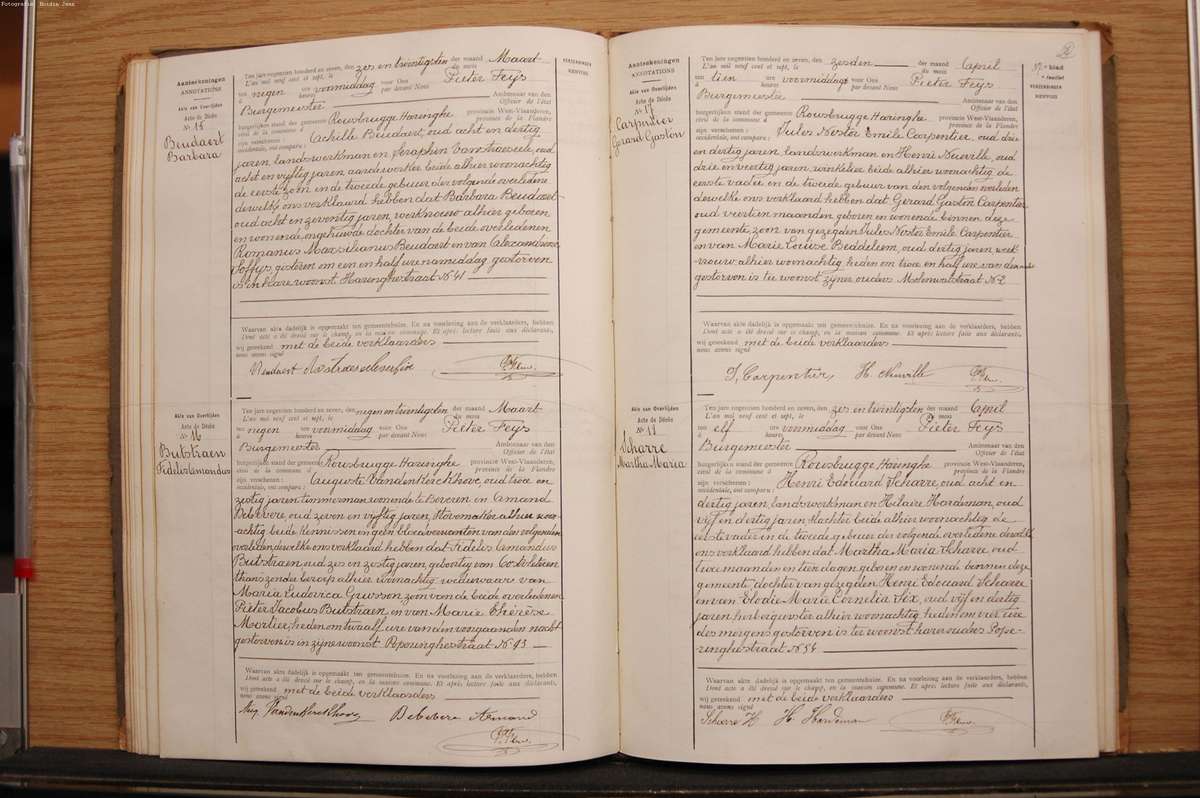 Fotografie: Boudin Jean
Aanteekeningen
ANNOTATIONS
Akte van Overlijden
Acte de Décès
N° 15
Beudaert
Barbara
Ten jare negentien honderd en zeven, den zes en twintigsten der maand Maart
L'an mil neuf cent et sept, le du mois
ten negen ure voormiddag voor Ons Pieter Feijs
à heures par devant Nous
Burgemeester Ambtenaar van den
Officier de l'état
burgerlijken stand der gemeente Rousbrugge Haringhe provincie West-Vlaanderen,
civil de la commune d province de la Flandre
zijn verschenen: Achille Beudaert, oud acht en dertig
occidentale, ont comparu:
jaren, landswerkman en Seraphin Vanstraceele, oud
acht en vijftig jaren, aardewerker beide alhier woonachtig
de eerste zoon en de tweede gebuer der volgende overledene
dewelke ons verklaard hebben dat Barbara Beudaert
oud acht en zeventig jaren, werkvrouw alhier geboren
en wonende, ongehuwde dochter van de beide overledenen
Romanus Marsilianus Beudaert en van Alexandrine
Soffijs gisteren om een en half ure namiddag gestorven
is in hare woonst Haringhestraat N° 41
Waarvan akte dadelijk is opgemaakt ten gemeentehuize. En na voorlezing aan de verklaarders, hebben
Dont acte a été dressé sur le champ, en la maison commune. Et après lecture faite aux déclarants,
wij geteekend met de beide verklaarders
nous avons signé
Beudaert
VERZENDINGEN
RENVOIS
Akte van Overlijden
Acte de Décès
N° 16
Butstraen
Fidelis Amandus
Ten jare negentien honderd en zeven, den negen en twintigsten der maand Maart
L'an mil neuf cent et sept, le du mois
ten negen ure voormiddag voor Ons Pieter Feijs
à heures par devant Nous
Burgemeester Ambtenaar van den
Officier de l'état
burgerlijken stand der gemeente Rousbrugge Haringhe provincie West-Vlaanderen,
civil de la commune d province de la Flandre
zijn verschenen: Auguste Vandenkerckhove, oud twee en
occidentale, ont comparu:
zestig jaren timmerman wonende te Beveren en Amand
Debevere oud zeven en vijftig jaren, stovemaker alhier woon-
achtig beide kennissen en geen bloedverwanten van den volgenden
overleden dewelke ons verklaard hebben dat Fidelis Amandus
Butstraen oud zes en zestig jaren, geboortig van Oostvleteren
thans zonder beroep alhier woonachtig weduwaar van
Maria Ludovica Gruson zoon van de beide overledenen
Pieter Jacobus Butstraen en van Marie Thérèse
Mortier, heden om twaalf ure van den voorgaanden nacht
gestorven is in zijne woonst Poperinghestraat N° 93
Waarvan akte dadelijk is opgemaakt ten gemeentehuize. En na voorlezing aan de verklaarders, hebben
Dont acte a été dressé sur le champ, en la maison commune. Et après lecture faite aux déclarants,
wij geteekend met de beide verklaarders
nous avons signé
Aug. Vandenkerckhove Debebere Armand
Aanteekeningen
ANNOTATIONS
Akte van Overlijden
Acte de Décès
N° 17
Carpentier
Gerard Gaston
Ten jare negentien honderd en zeven, den zesden der maand April
L'an mil neuf cent et sept, le du mois
ten tien ure voormiddag voor Ons Pieter Feijs
à heures par devant Nous
Burgemeester Ambtenaar van den
Officier de l'état
burgerlijken stand der gemeente Rousbrugge Haringhe provincie West-Vlaanderen,
civil de la commune d province de la Flandre
zijn verschenen: Jules Nestor Emile Carpentier, oud drie
occidentale, ont comparu:
en dertig jaren, landswerkman en Henri Neuville, oud
drie en veertig jaren, winkelier beide alhier woonachtig, de
eerste vader en de tweede gebuur van den volgenden overleden
dewelke ons verklaard hebben dat Gerard Gaston Carpentier
oud veertien maanden, geboren en wonende binnen deze
gemeente zoon van gezegden Jules Nestor Emile Carpentier
en van Marie Louise Beddeleem, oud dertig jaren werk-
vrouw alhier woonachtig, heden om twee en half ure van den
gestorven is ter woonst zijner ouders Molenwalstraat N° 2
Waarvan akte dadelijk is opgemaakt ten gemeentehuize. En na voorlezing aan de verklaarders, hebben
Dont acte a été dressé sur le champ, en la maison commune. Et après lecture faite aux déclarants,
wij geteekend met de beide verklaarders
nous avons signé
J. Carpentier H. Neuville
blad
feuillet
VERZENDINGEN
RENVOIS
Akte van Overlijden
Acte de Décès
N° 18
Scharre
Martha Maria
Ten jare negentien honderd en zeven, den zes en twintigsten der maand April
L'an mil neuf cent et sept, le du mois
ten elf ure voormiddag voor Ons Pieter Feijs
à heures par devant Nous
Burgemeester Ambtenaar van den
Officier de l'état
burgerlijken stand der gemeente Rousbrugge Haringhe provincie West-Vlaanderen,
civil de la commune d province de la Flandre
zijn verschenen: Henri Edouard Scharre oud acht en
occidentale, ont comparu:
dertig jaren, landswerkman en Hilaire Hardeman, oud
vijf en dertig jaren, slachter beide alhier woonachtig de
eerste vader in de tweede gebuer der volgende overledene dewelke
ons verklaard hebben dat Martha Maria Scharre oud
twee maanden en tien dagen, geboren en wonende binnen deze
gemeente, dochter van gezegden Henri Edouard Scharre
en van Elodie Marie Cornelia Six, oud vijf en dertig
jaren, herbergierster alhier woonachtig, heden om vier ure
des morgens gestorven is ter woonst harer ouders Pope-
ringhestraat N° 54
Waarvan akte dadelijk is opgemaakt ten gemeentehuize. En na voorlezing aan de verklaarders, hebben
Dont acte a été dressé sur le champ, en la maison commune. Et après lecture faite aux déclarants,
wij geteekend met de beide verklaarders
nous avons signé
Scharre H. H. Hardeman